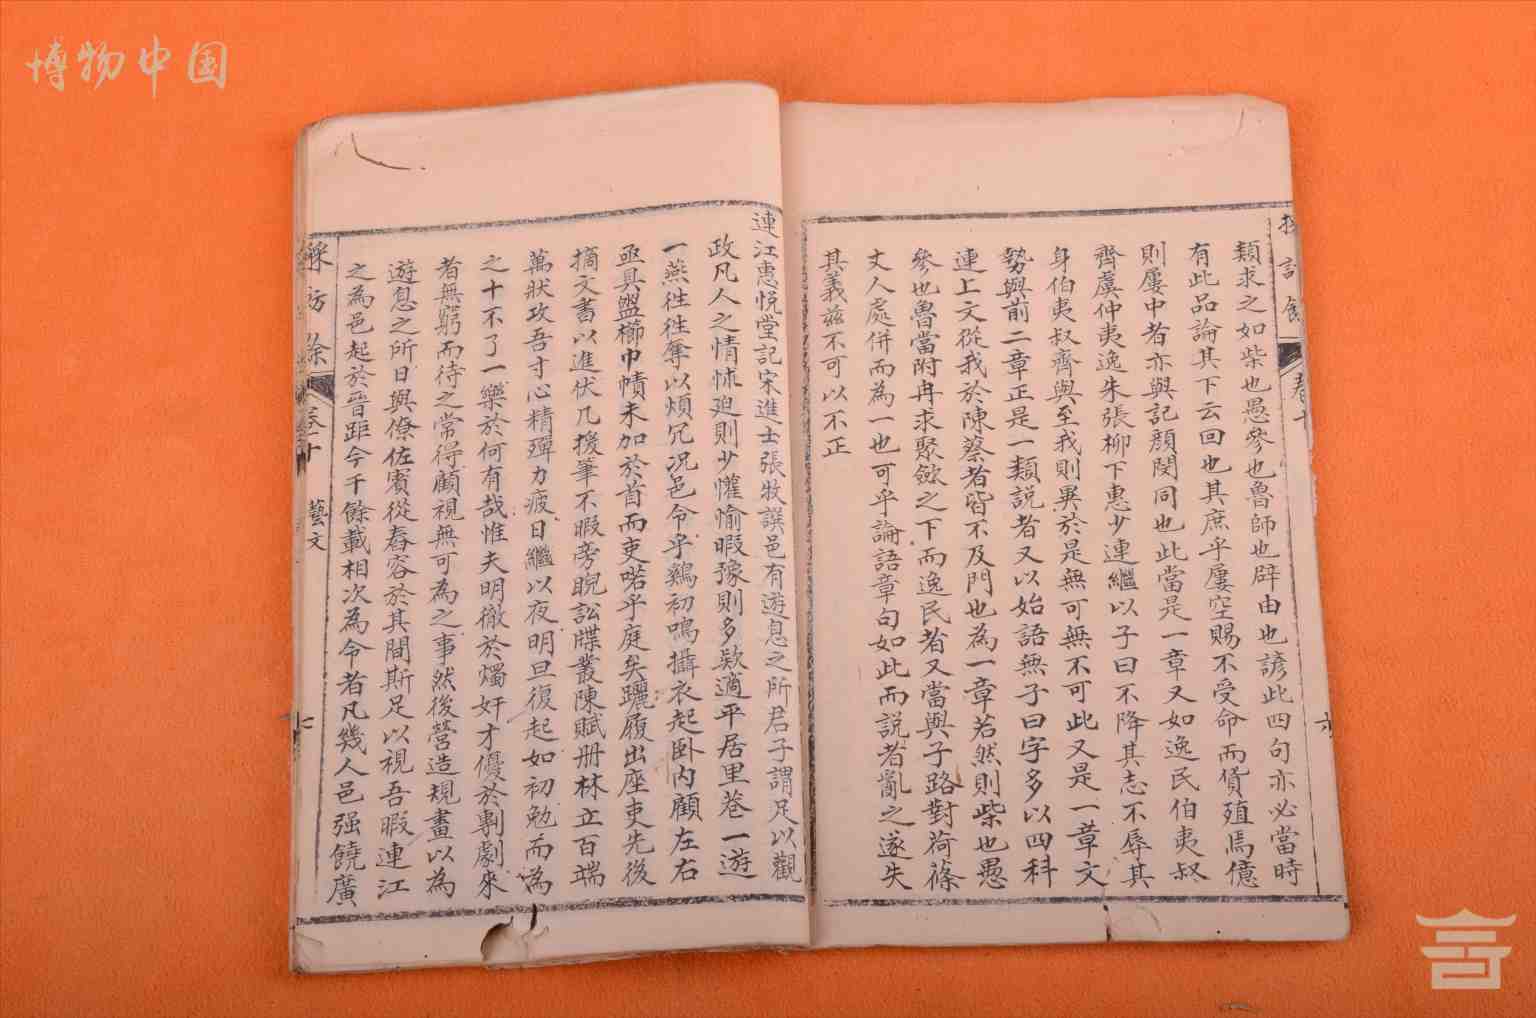 博物中国
類求之如柴也愚參也魯師也辟由也諺此四句亦必當時
有此品論其下云回也其庶乎屢空賜不受命而貨殖焉億
則屢中者亦與記顏閔同也此當是一章又如逸民伯夷叔
齊虞仲夷逸朱張柳下惠少連繼以子曰不降其志不辱其
身伯夷叔齊與至我則異於是無可無不可此又是一章文
勢與前二章正是一類說者又以始語無子曰字多以四科
連上文從我於陳蔡者皆不及門也為一章若然則柴也愚
參也魯當附冉求聚歛之下而逸民者又當與子路對荷蓧
丈人處併而為一也可乎論語章句如此而說者亂之遂失
其義茲不可以不正
連江惠悅堂記宋進士張牧譔邑有遊息之所君子謂足以觀
政凡人之情怵迫則少懽愉暇豫則多欵適平居里巷一遊
一燕徃徃奪以煩冗況邑令乎鷄初鳴攝衣起卧内顧左右
亟具盥櫛巾幘未加於首而吏喏乎庭矣躧履出座吏先後
摘文書以進伏几援筆不暇旁睨訟牒叢陳賦册林立百端
萬狀攻吾寸心精殫力疲日繼以夜明旦復起如初勉而為
之十不了一樂於何有哉惟夫明徹於燭奸才優於剸劇來
者無窮而待之常得顧視無可為之事然後營造規畫以為
遊息之所日與僚佐賓從舂容於其間斯足以視吾暇連江
之為邑起於晉距今千餘載相次為令者凡幾人邑强饒廣
採訪餘 卷十 藝文 七